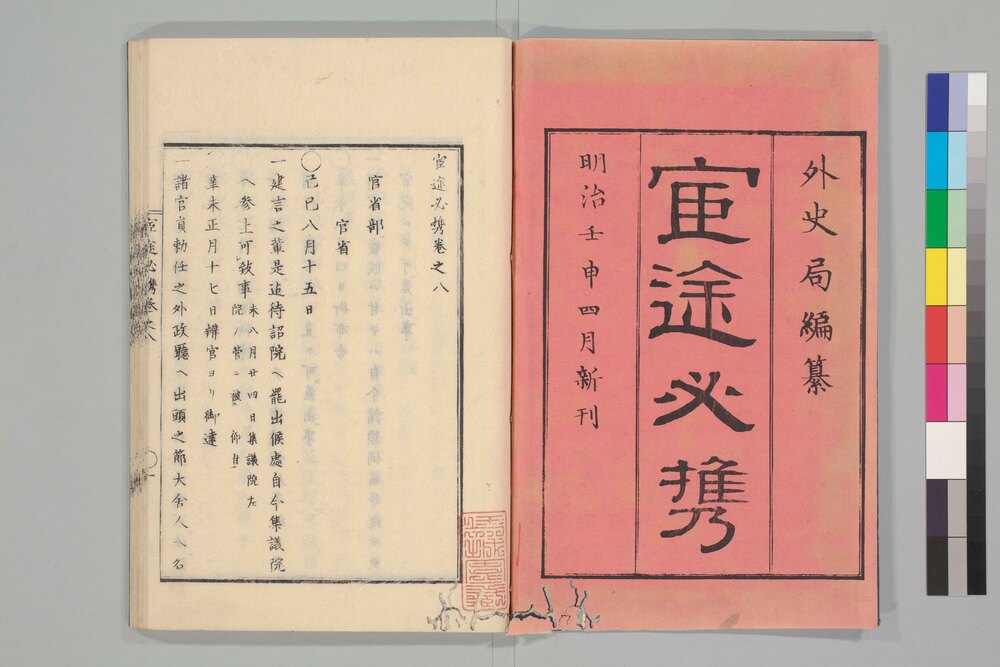 外史局編纂
宦途必携
明治壬申四月新刊
宦途必携卷之八
官省部
官省
〇己巳八月十五日
一建言之輩是迄待詔院ヘ罷出候處自今集議院
ヘ参上可致事 未八月廿四日集議院左院ノ管ニ被仰付
辛未正月十七日辨官ヨリ御達
一諸官員勅任之外政廳ヘ出頭之節大舍人ヘ名
宦途必携卷之八
〇一